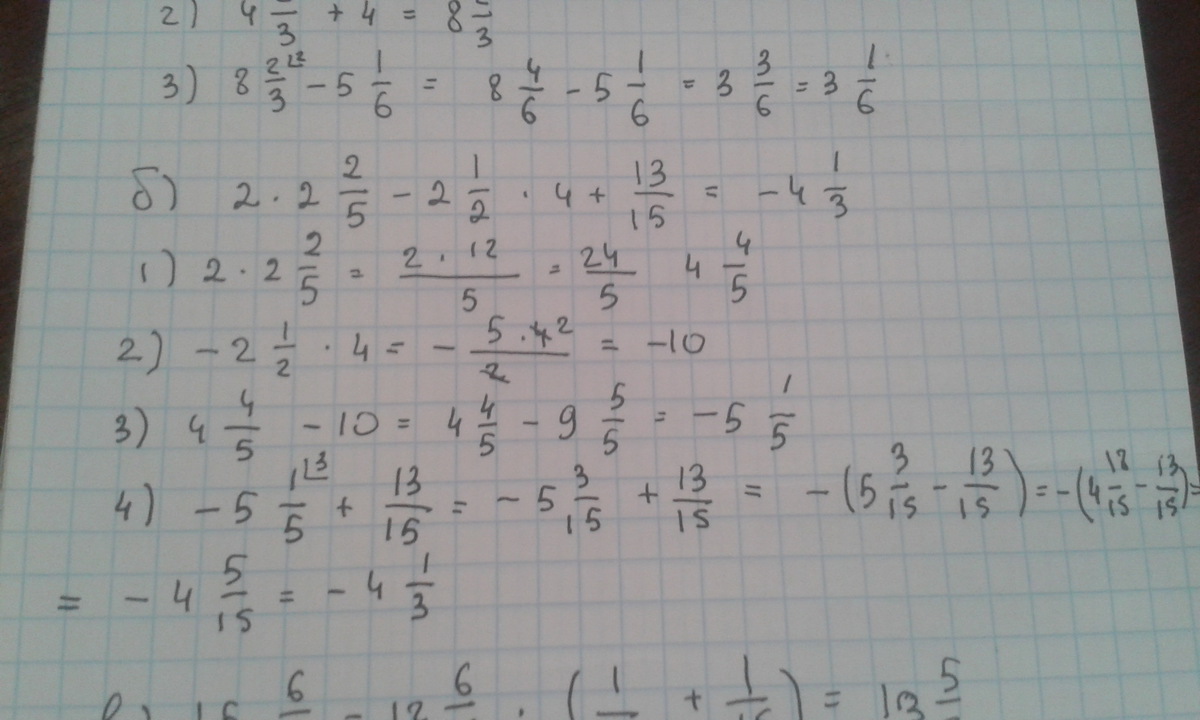 2) 4 –/3 + 4 = 8 –/3
3) 8 2/3 ⌊2 − 5 1/6 = 8 4/6 − 5 1/6 = 3 3/6 = 3 1/6
б) 2 · 2 2/5 − 2 1/2 · 4 + 13/15 = − 4 1/3
1) 2 · 2 2/5 = 2 · 12/5 = 24/5 4 4/5
2) − 2 1/2 · 4 = − 5 · 4 2/2 = −10
3) 4 4/5 − 10 = 4 4/5 − 9 5/5 = − 5 1/5
4) − 5 1/5 ⌊3 + 13/15 = − 5 3/15 + 13/15 = − (5 3/15 − 13/15) = − (4 18/15 − 13/15) =
= − 4 5/15 = − 4 1/3
6 − 12 6 · (1 + 1) = 13 5